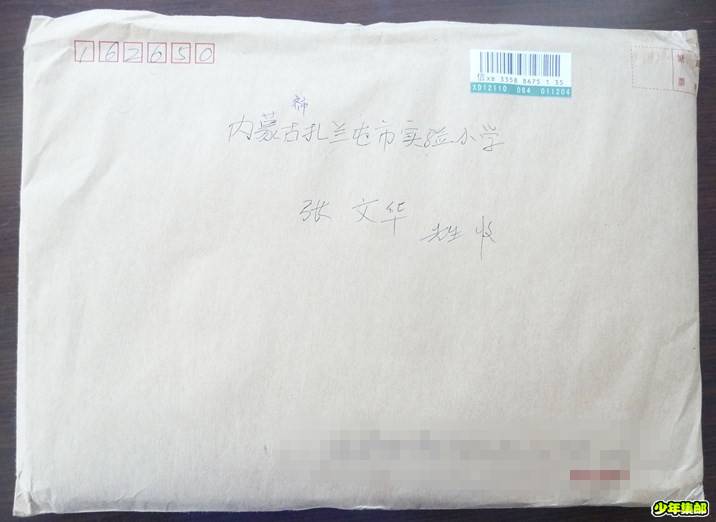 162650
信XB 3358 8675 1 35
XD12110 084 011204
内蒙古扎兰屯市实验小学
张文华
先生 收
少年集邮